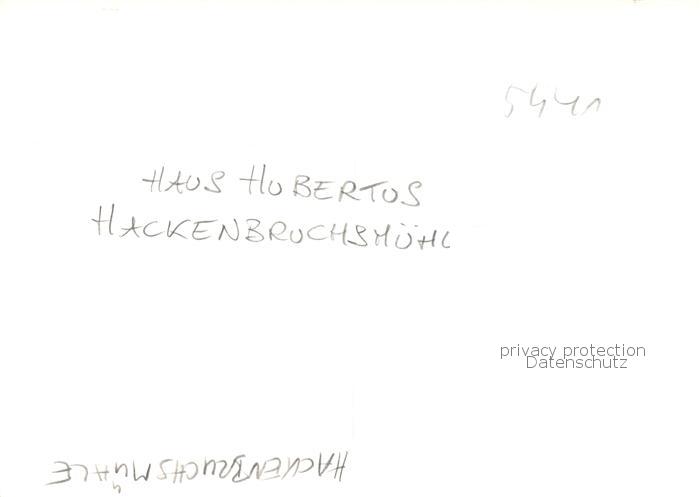 5441
HAUS HUBERTUS
HACKENBRUCHSMÜHL
privacy protection
Datenschutz
HACKENBRUCHSMÜHLE